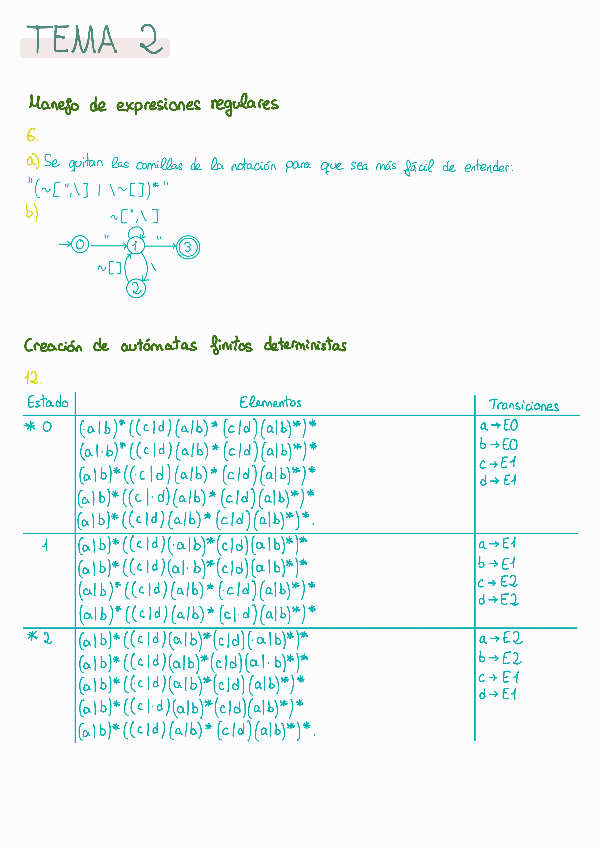 TEMA 2
Manejo de expresiones regulares
6.
a) Se quitan las comillas de la notación para que sea más fácil de entender:
"(~[",\] | \~[])*"
b)
~[",\]
0 " 1 " 3
~[] \
2
Creación de autómatas finitos deterministas
12.
Estado Elementos Transiciones
* 0 (·a|b)*((c|d)(a|b)*(c|d)(a|b)*)* a→E0
(a|·b)*((c|d)(a|b)*(c|d)(a|b)*)* b→E0
(a|b)*((·c|d)(a|b)*(c|d)(a|b)*)* c→E1
(a|b)*((c|·d)(a|b)*(c|d)(a|b)*)* d→E1
(a|b)*((c|d)(a|b)*(c|d)(a|b)*)*.
1 (a|b)*((c|d)(·a|b)*(c|d)(a|b)*)* a→E1
(a|b)*((c|d)(a|·b)*(c|d)(a|b)*)* b→E1
(a|b)*((c|d)(a|b)*(·c|d)(a|b)*)* c→E2
(a|b)*((c|d)(a|b)*(c|·d)(a|b)*)* d→E2
* 2 (a|b)*((c|d)(a|b)*(c|d)(·a|b)*)* a→E2
(a|b)*((c|d)(a|b)*(c|d)(a|·b)*)* b→E2
(a|b)*((·c|d)(a|b)*(c|d)(a|b)*)* c→E1
(a|b)*((c|·d)(a|b)*(c|d)(a|b)*)* d→E1
(a|b)*((c|d)(a|b)*(c|d)(a|b)*)*.